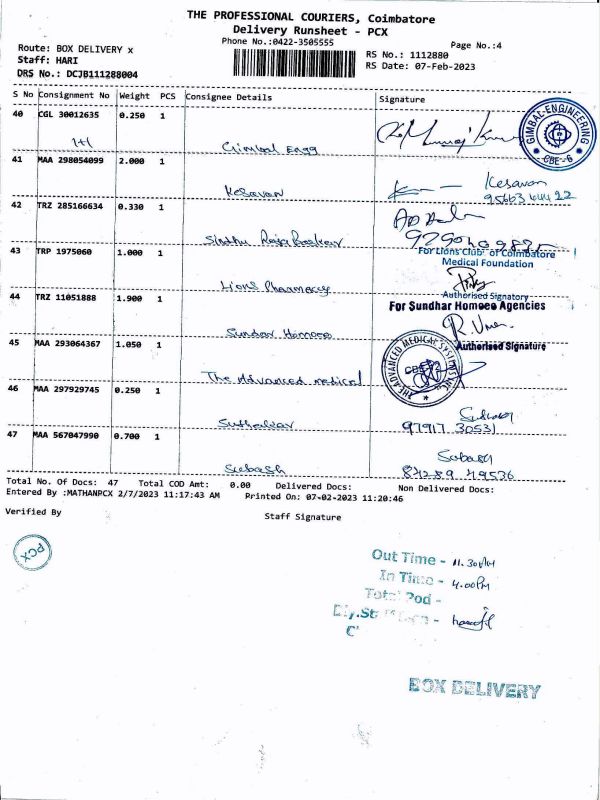 THE PROFESSIONAL COURIERS, Coimbatore
Delivery Runsheet - PCX
Phone No.:0422-3505555
Page No.:4
Route: BOX DELIVERY x
Staff: HARI
DRS No.: DCJB111288004
RS No.: 1112880
RS Date: 07-Feb-2023
S No Consignment No Weight PCS Consignee Details Signature
40 CGL 30012635 0.250 1
1+1 Gimbal Engg
GIMBAL-ENGINEERING CBE-6
41 MAA 298054099 2.000 1
Kesavan Kesavan
42 TRZ 285166634 0.330 1
Sindhu Raja Baskar
43 TRP 1975060 1.000 1
For Lions Club of Coimbatore
Medical Foundation
Lions Pharmacy
Authorised Signatory
44 TRZ 11051888 1.900 1
For Sundhar Homoeo Agencies
Sundar Homoeo
R. Uma
Authorised Signature
45 MAA 293064367 1.050 1
The Advanced medical
THE ADVANCED MEDICAL SYSTEMS INC
46 MAA 297929745 0.250 1
Suthakar
97917 30531
47 MAA 567047990 0.700 1
Subash Subash
Total No. Of Docs: 47 Total COD Amt: 0.00 Delivered Docs: Non Delivered Docs:
Entered By :MATHANPCX 2/7/2023 11:17:43 AM Printed On: 07-02-2023 11:20:46
Verified By
Staff Signature
PCX
Out Time - 11.30AM
In Time - 4.00PM
Total Pod -
BOX DELIVERY